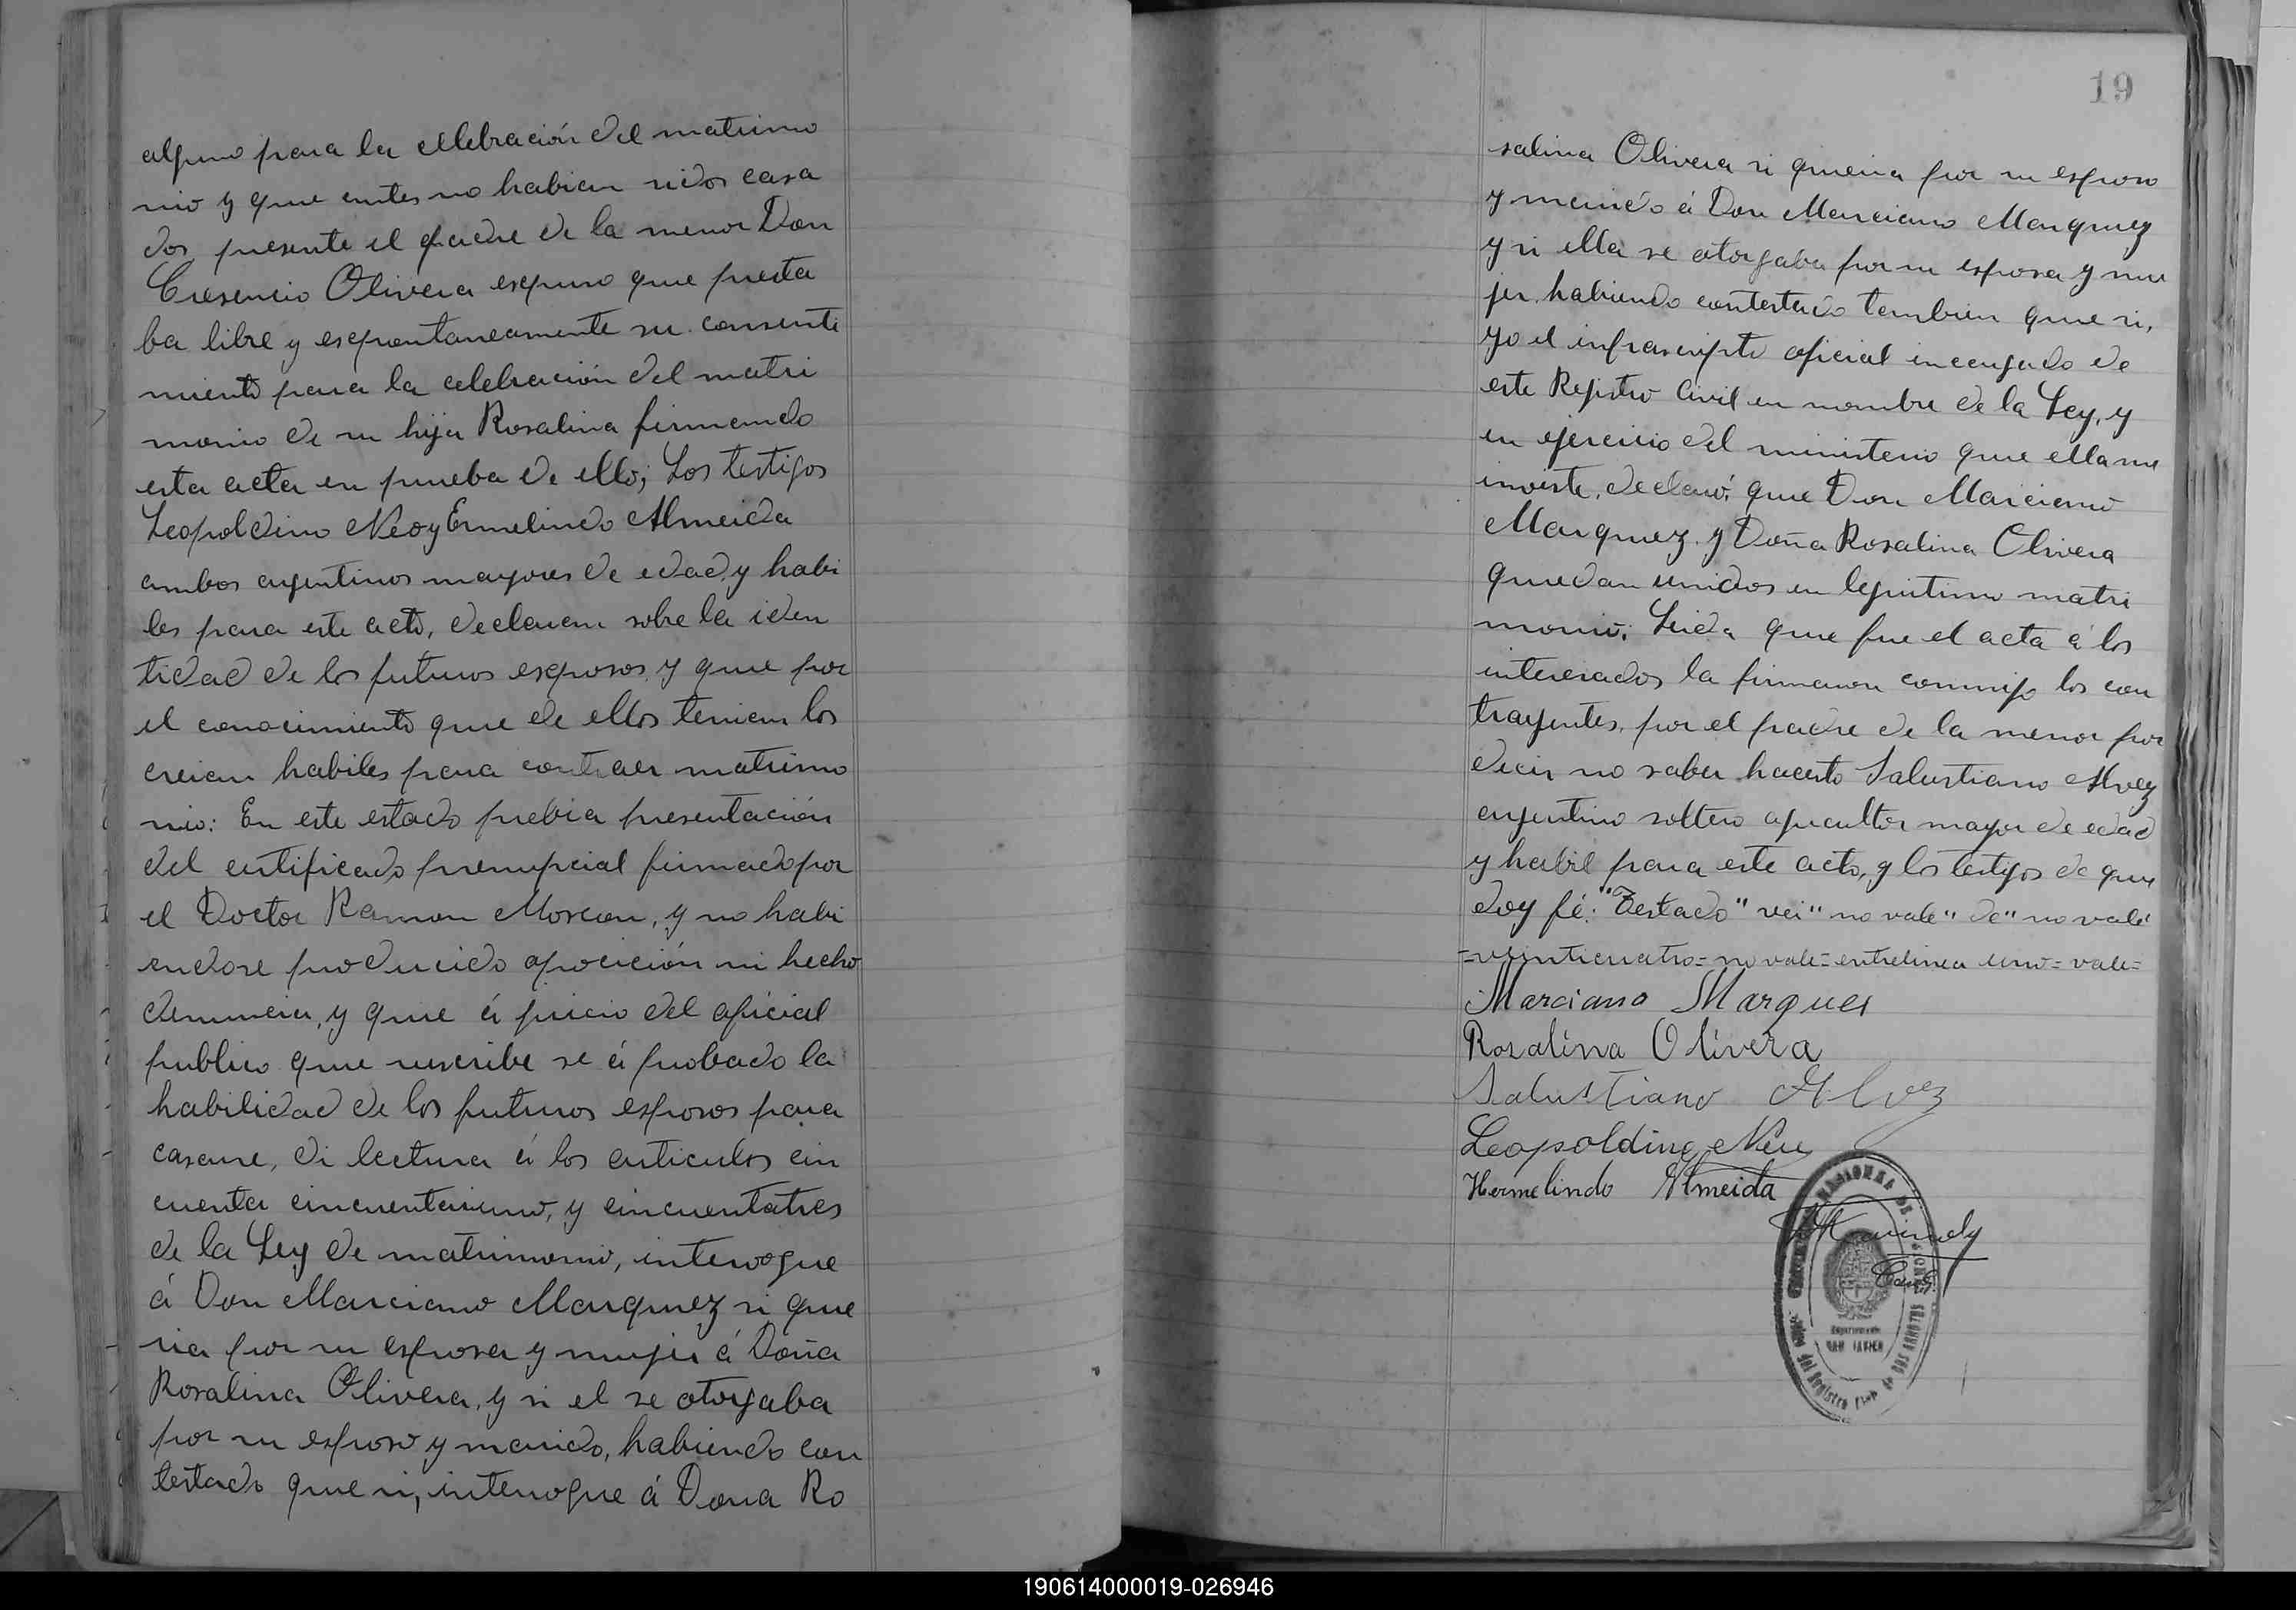 alguno para la celebración del matrimo
nio y que antes no habian sidos casa
dos, presente el padre de la menor Don
Cresencio Olivera espuso que presta
ba libre y espontaneamente su consenti
miento para la celebración del matri
monio de su hija Rosalina firmando
esta acta en prueba de ello; Los testigos
Leopoldino Neo y Ermelindo Almeida
ambos argentinos mayores de edad, y habi
les para este acto, declaran sobre la iden
tidad de los futuros esposos, y que por
el conocimiento que de ellos tenian los
creian habiles para contraer matrimo
nio: En este estado prebia presentación
del certificado prenupcial firmado por
el Doctor Ramon, y no habi
endose producido oposición ni hecho
denuncia, y que á juicio del oficial
publico que suscribe se á probado la
habilidad de los futuros esposos para
casarse, di lectura á los articulos cin
cuenta cincuentaiuno, y cincuentatres
de la Ley de matrimonio, interrogue
á Don Marciano Marquez si que
ria por su esposa y mujer á Doña
Rosalina Olivera, y si el se otorgaba
por su esposo y marido, habiendo con
testado que si, interrogue á Dona Ro
19
salina Olivera si queria por su esposo
y marido á Don Marciano Marquez
y si ella se otorgaba por su esposa y mu
jer, habiendo contestado tambien que si,
yo el infrascripto oficial encargado de
este Registro Civil en nombre de la Ley, y
en ejercicio del ministerio que ella me
inviste, declaró: que Don Marciano
Marquez y Doña Rosalina Olivera
quedan unidos en legitimo matri
monio; Leida que fue el acta á los
interesados la firmaron conmigo los con
trayentes, por el padre de la menor por
decir no saber hacerlo Salustiano Alvez
argentino soltero agricultor mayor de edad
y habil para este acto, y los testigos de que
doy fé: "Testado" vei" no vale" de" no vale"
=veinticuatro= no vale= entrelinea uno= vale=
Marciano Marques
Rosalina Olivera
Salustiano Alvez
Leopoldino Neu
Hermelindo Almeida
SAN JAVIER
190614000019-026946